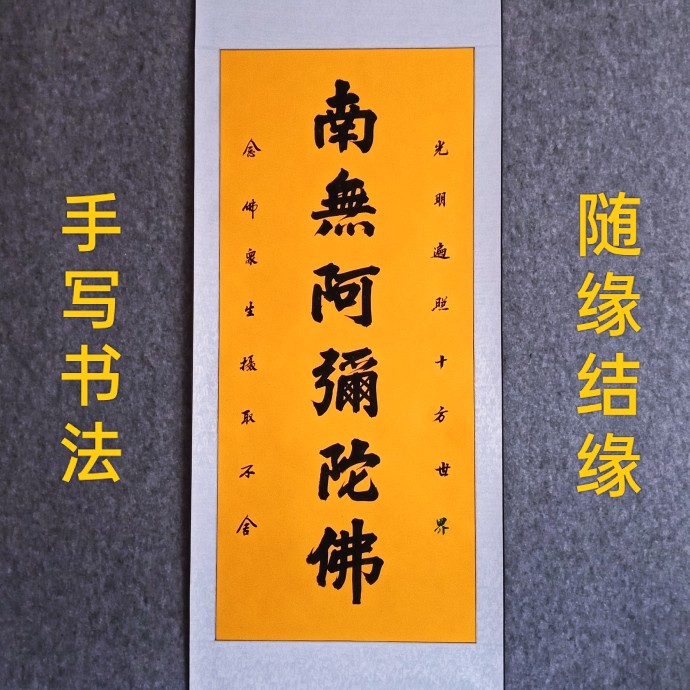 随缘结缘
光明遍照十方世界
南無阿彌陀佛
念佛衆生攝取不舍
手写书法